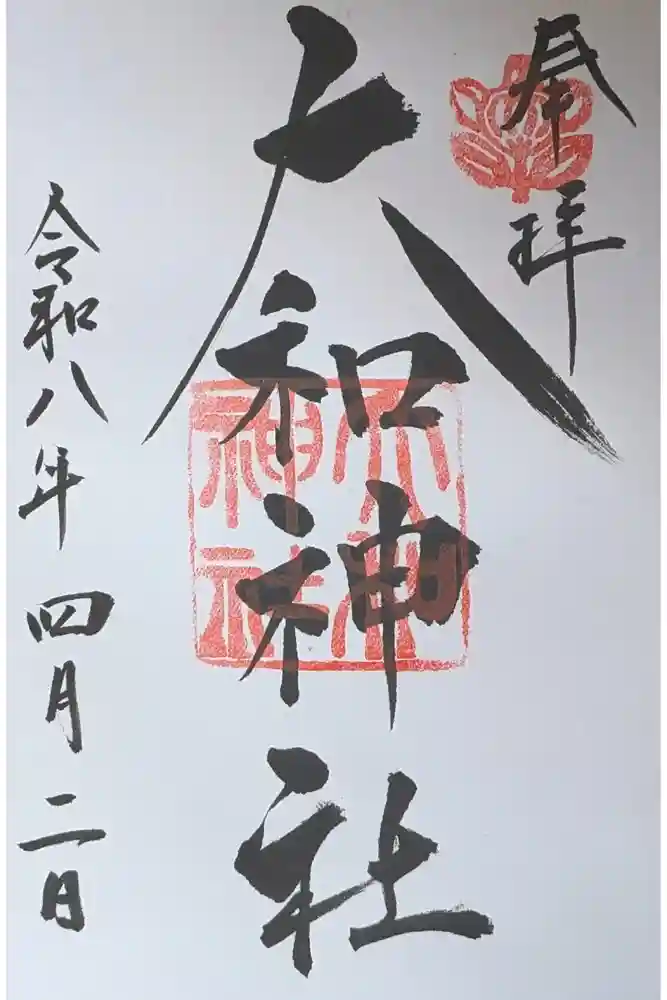 奉拝
大和神社
大和神社
令和八年四月二日